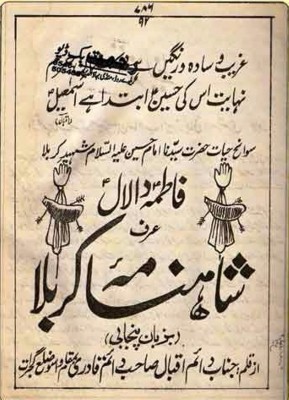 ۷۸۶
۹۲
غریب و سادہ و رنگیں ہے
نہایت اس کی حسینؑ ابتدا ہے اسمٰعیلؑ
سوانح حیات حضرت سیدنا امام حسین علیہ السلام شہید کربلا
فاطمہؑ دا لال
عرف
شاہنامۂ کربلا
(بزبان پنجابی)
از قلم: جناب دائم اقبال صاحب دائم قادری ضلع گجرات